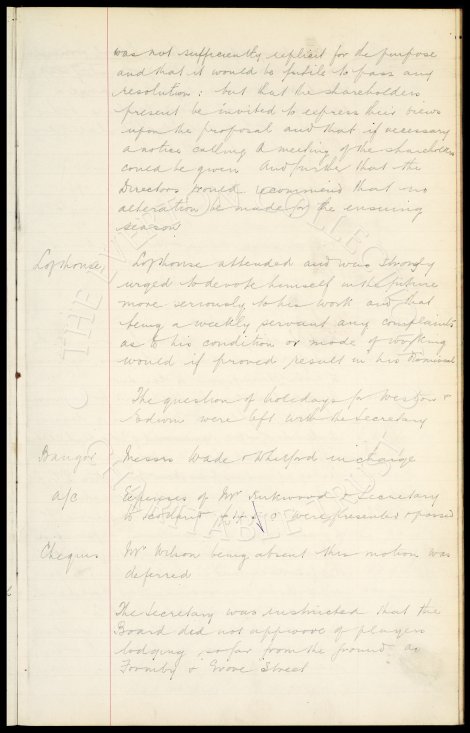 was not sufficiently explicit for the purpose
and that it would be futile to pass any
resolution: but that the shareholders
present be invited to express their views
upon the proposal and that if necessary
a notice calling a meeting of the shareholders
could be given And further that the
Directors would recommend that no
alteration be made for the ensuing
season.
Lofthouse, Lofthouse attended and was strongly
urged to devote himself in the future
more seriously to his work and that
being a weekly servant any complaints
as to his condition or mode of working
would if proved result in his dismissal
The question of holidays for &
Edwin were left with the Secretary
Bangor Messrs Wade & Whitford in charge
a/c Expenses of Mr Kirkwood & Secretary
to Scotland were presented & passed
Cheques Mr Wilson being absent this motion was
deferred
The Secretary was instructed that the
Board did not approve of players
lodging so far from the ground as
Formby & Grove Street
THE EVERTON COLLECTION
CHARITABLE TRUST